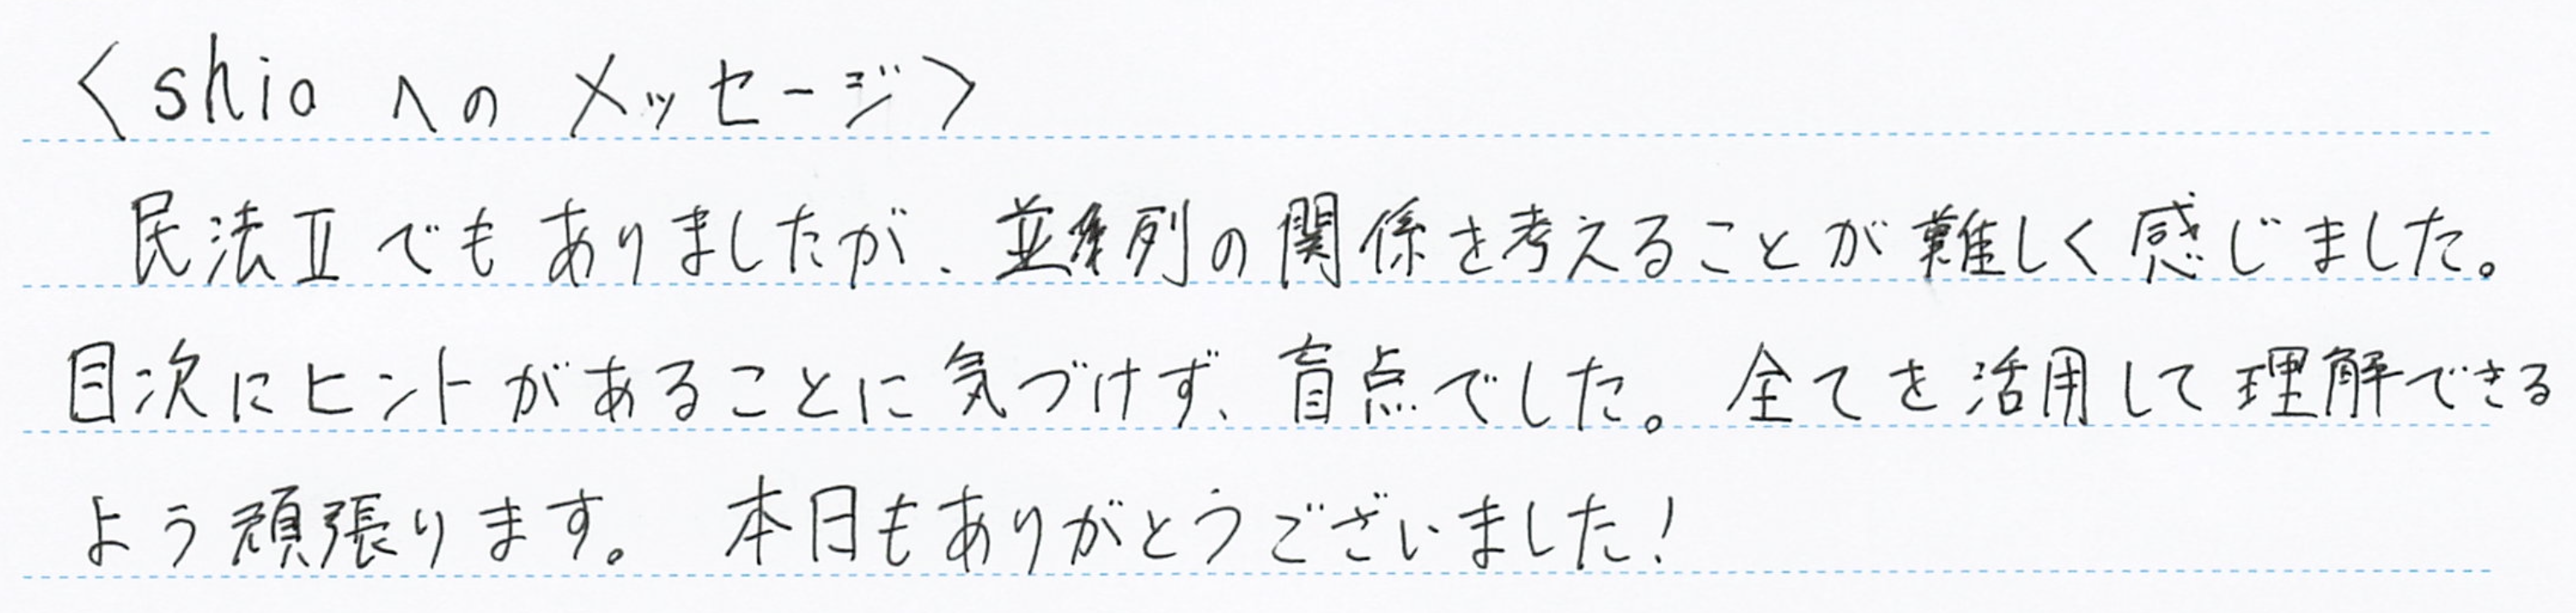 〈shio へのメッセージ〉
民法Ⅱでもありましたが、並列の関係を考えることが難しく感じました。
目次にヒントがあることに気づけず、盲点でした。全てを活用して理解できる
よう頑張ります。本日もありがとうございました!